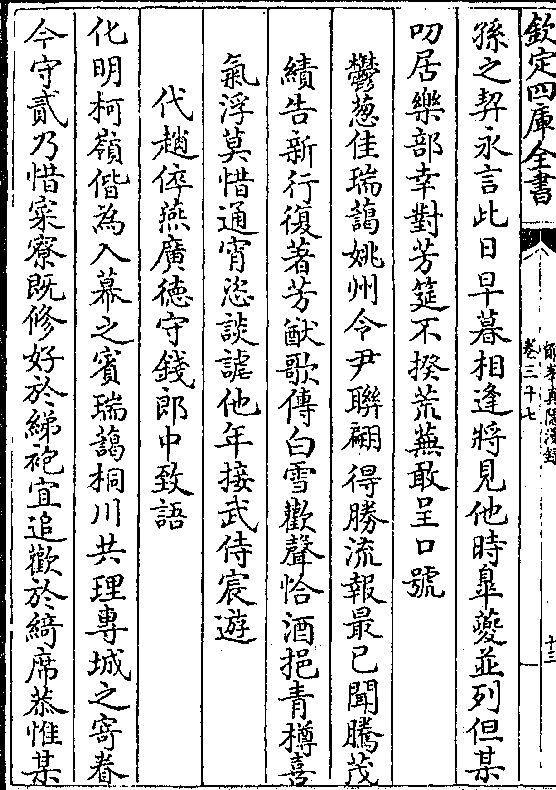 欽定四庫全書
鄮峯真隱漫錄
卷三十七
十三
孫之契永言此日早暮相逢將見他時臯夔並列但某
叨居樂部幸對芳筵不揆荒蕪敢呈口號
鬱葱佳瑞藹姚州令尹聯翩得勝流報最已聞騰茂
績告新行復著芳猷歌傳白雪歡聲恰酒挹青樽喜
氣浮莫惜通宵恣談謔他年接武侍宸遊
代趙倅燕廣徳守錢郎中致語
化明柯嶺偕為入幕之賓瑞藹桐川共理專城之寄眷
今守貳乃惜寀寮既修好於綈袍宜追歡於綺席恭惟某